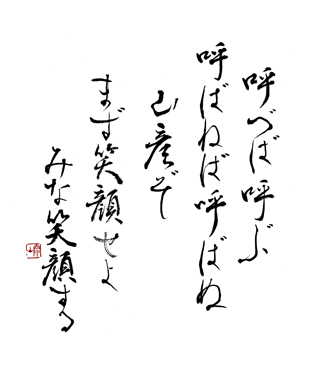 呼べば呼ぶ
呼ばねば呼ばぬ
山彦ぞ
まず笑顔せよ
みな笑顔する